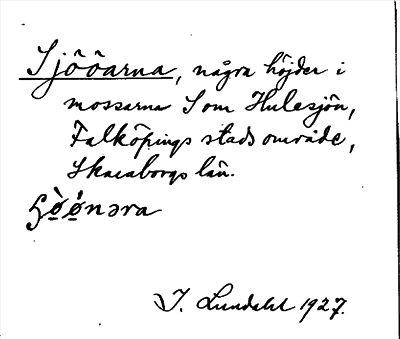 Sjööarna, några höjder i
mossarna S om Hulesjön,
Falköpings stads område,
Skaraborgs län.
ʂø̀ǿnəra
I. Lundahl 1927.